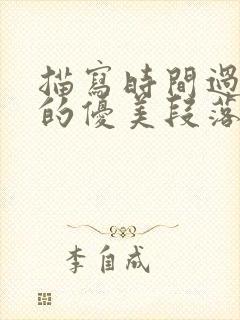 描寫時間過
的優美段落
李自成